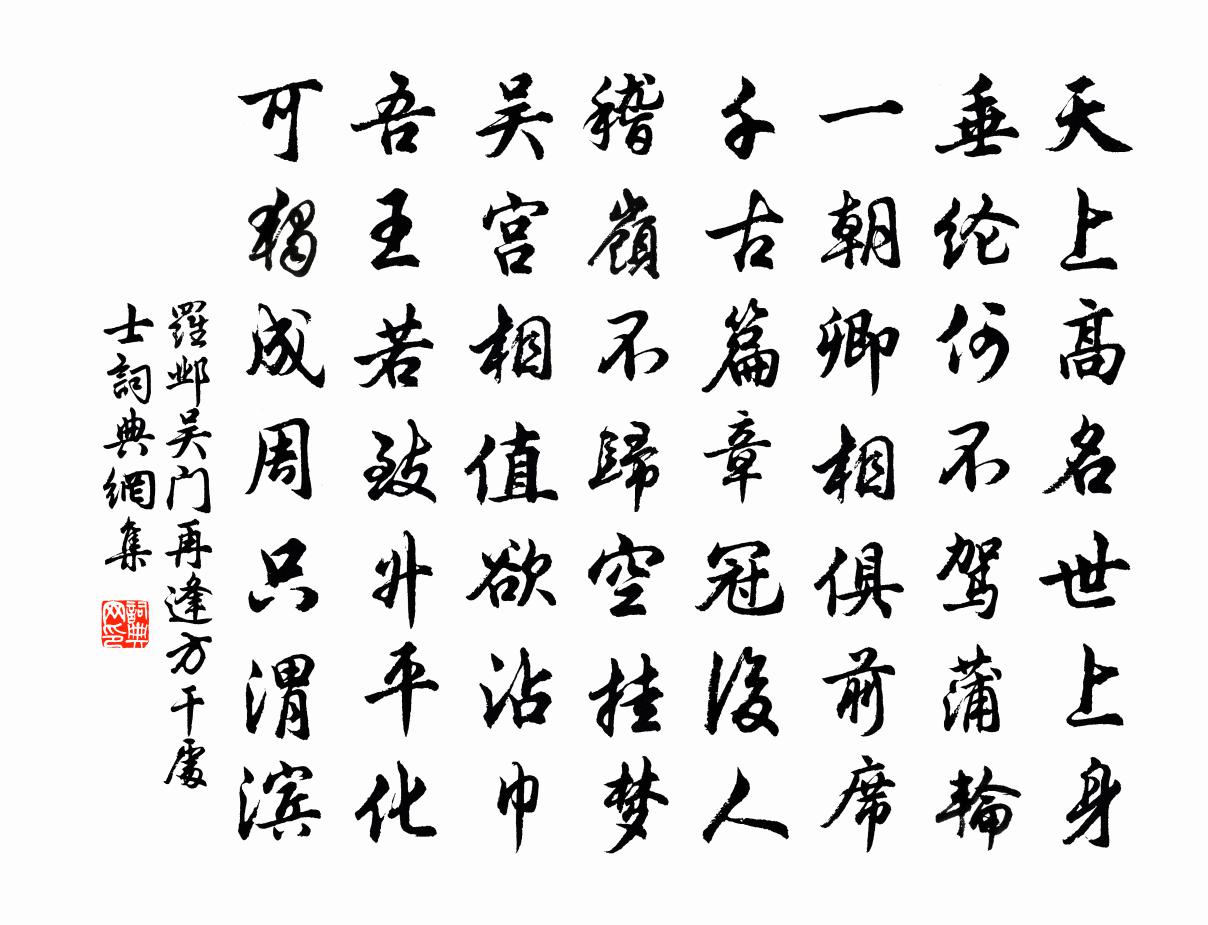 天上高名世上身
垂纶何不驾蒲輪
一朝卿相俱前席
千古篇章冠後人
稽嶺不歸空挂梦
吴宫相值欲沾巾
吾王若致升平化
可獨成周只渭滨
羅邺吴门再逢方干處
士詞典網集
詞典网印